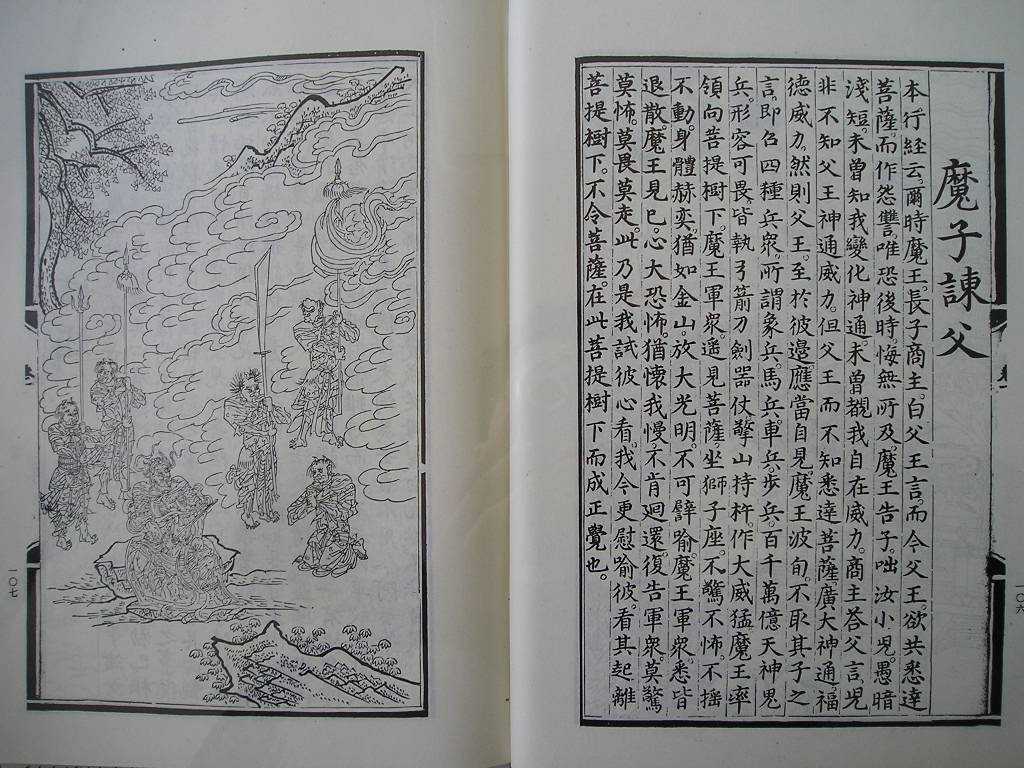 魔子諫父
本行経云爾時魔王長子商主白父王言而今父王欲共悉達
菩薩而作怨讐唯恐後時悔無所及魔王告子咄汝小児愚暗
淺短未曽知我變化神通未曽覩我自在威力商主荅父言児
非不知父王神通威力但父王而不知悉達菩薩廣大神通福
德威力然則父王至於彼邊應當自見魔王波旬不取其子之
言即召四種兵衆所謂象兵馬兵車兵步兵百千萬億天神鬼
兵形容可畏皆執弓箭刀劍器仗擎山持杵作大威猛魔王率
領向菩提樹下魔王軍衆遙見菩薩坐獅子座不驚不怖不摇
不動身體赫奕猶如金山放大光明不可譬喻魔王軍衆悉皆
退散魔王見已心大恐怖猶懷我慢不肯廻還復告軍衆莫驚
莫怖莫畏莫走此乃是我試彼心看我今更慰喻彼看其起離
菩提樹下不令菩薩在此菩提樹下而成正覺也
一〇六
一〇七